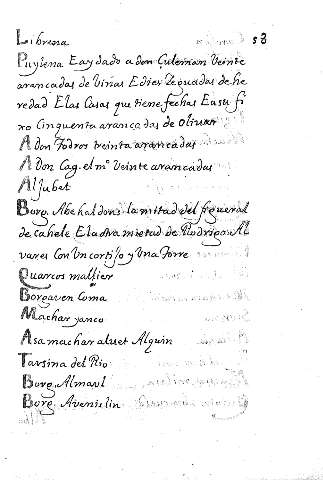 53
Librena
Puylena Eay dado a don Culeman Veinte
arancadas de Viñas Ediez Yeguadas de he
redad Elas Casas que tiene fechas Ea su fi
ro Cinquenta arancadas de Olivar
A don Todros treinta arancadas
A Don Cag. el mº Veinte arancadas
Aljubet
Borg. Abe haldons la mitad del figueral
de cahele Ela otra mietad de Rodrigo Al
varez Con Un cortijo y Una Torre
Quarcos mallier
Borgaven Coma
Machar yanco
Asa machar aluet Alquin
Tarsina del Rio
Borg. Almaul
Borg. Aveniclin